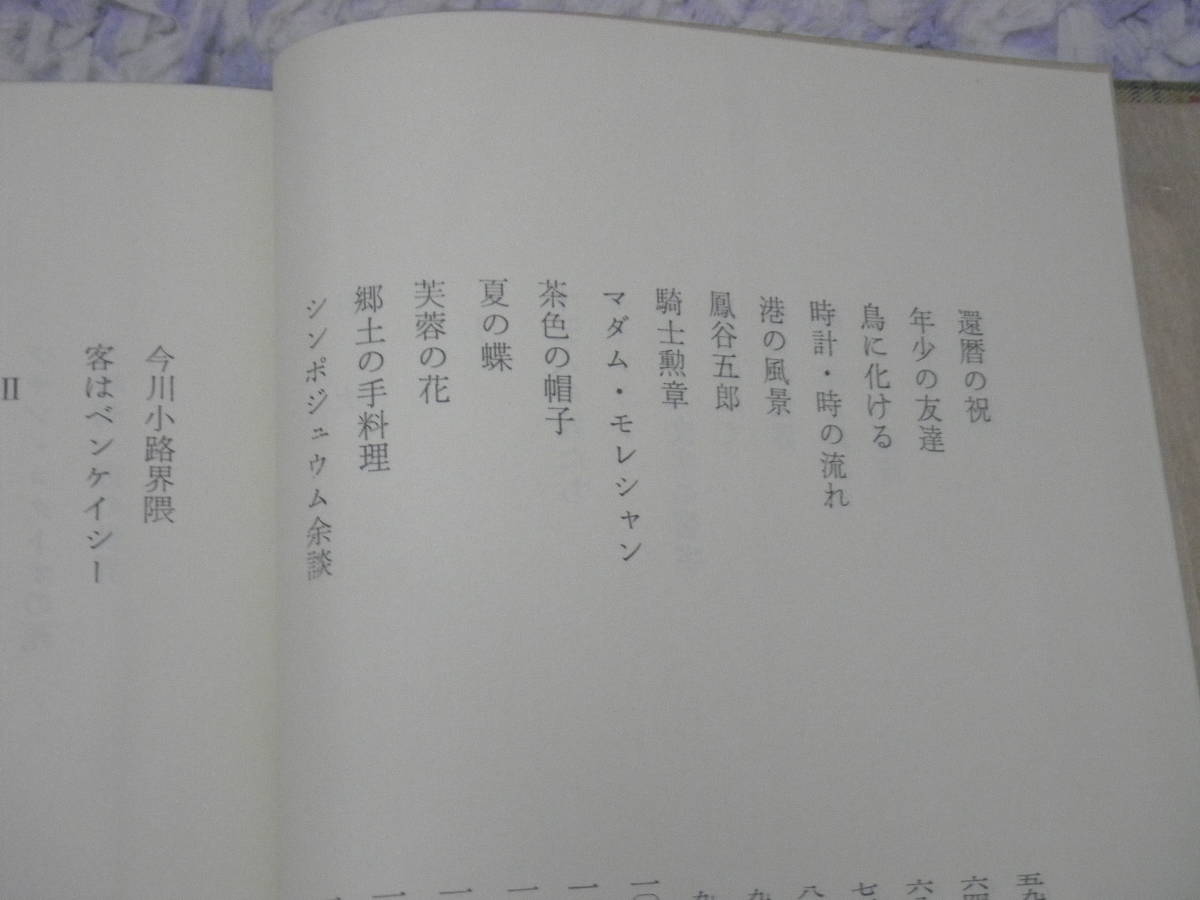 還暦の祝
年少の友達
鳥に化ける
時計・時の流れ
港の風景
鳳谷五郎
騎士勲章
マダム・モレシャン
茶色の帽子
夏の蝶
芙蓉の花
郷土の手料理
シンポジュウム余談
今川小路界隈
客はベンケイシー
II